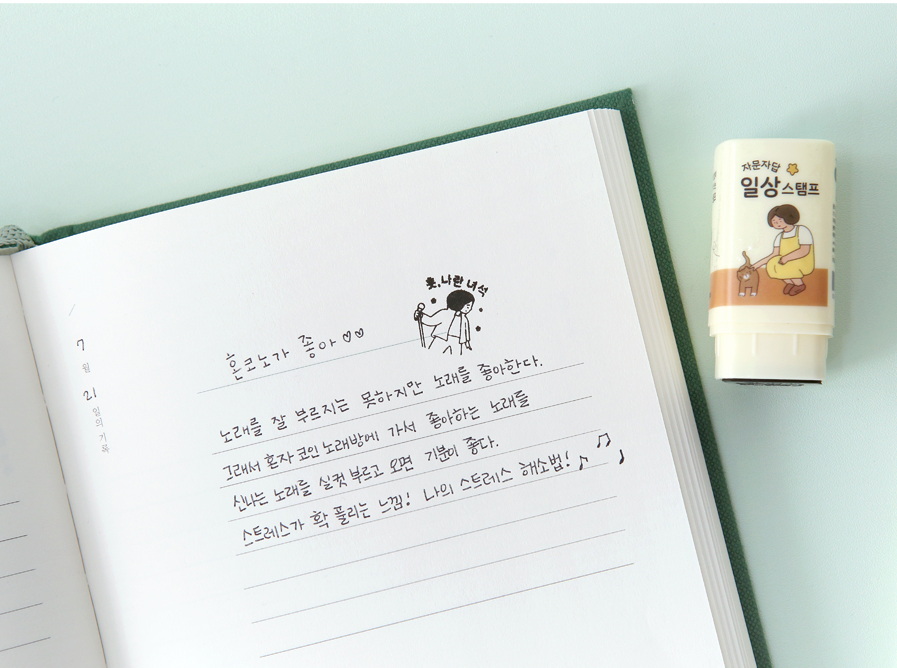 7
월
21
일의 기록
훗, 나란 녀석
혼코노가 좋아♡♡
노래를 잘 부르지는 못하지만 노래를 좋아한다.
그래서 혼자 코인 노래방에 가서 좋아하는 노래를
신나는 노래를 실컷 부르고 오면 기분이 좋다.
스트레스가 확 풀리는 느낌! 나의 스트레스 해소법!
자문자답
일상 스탬프